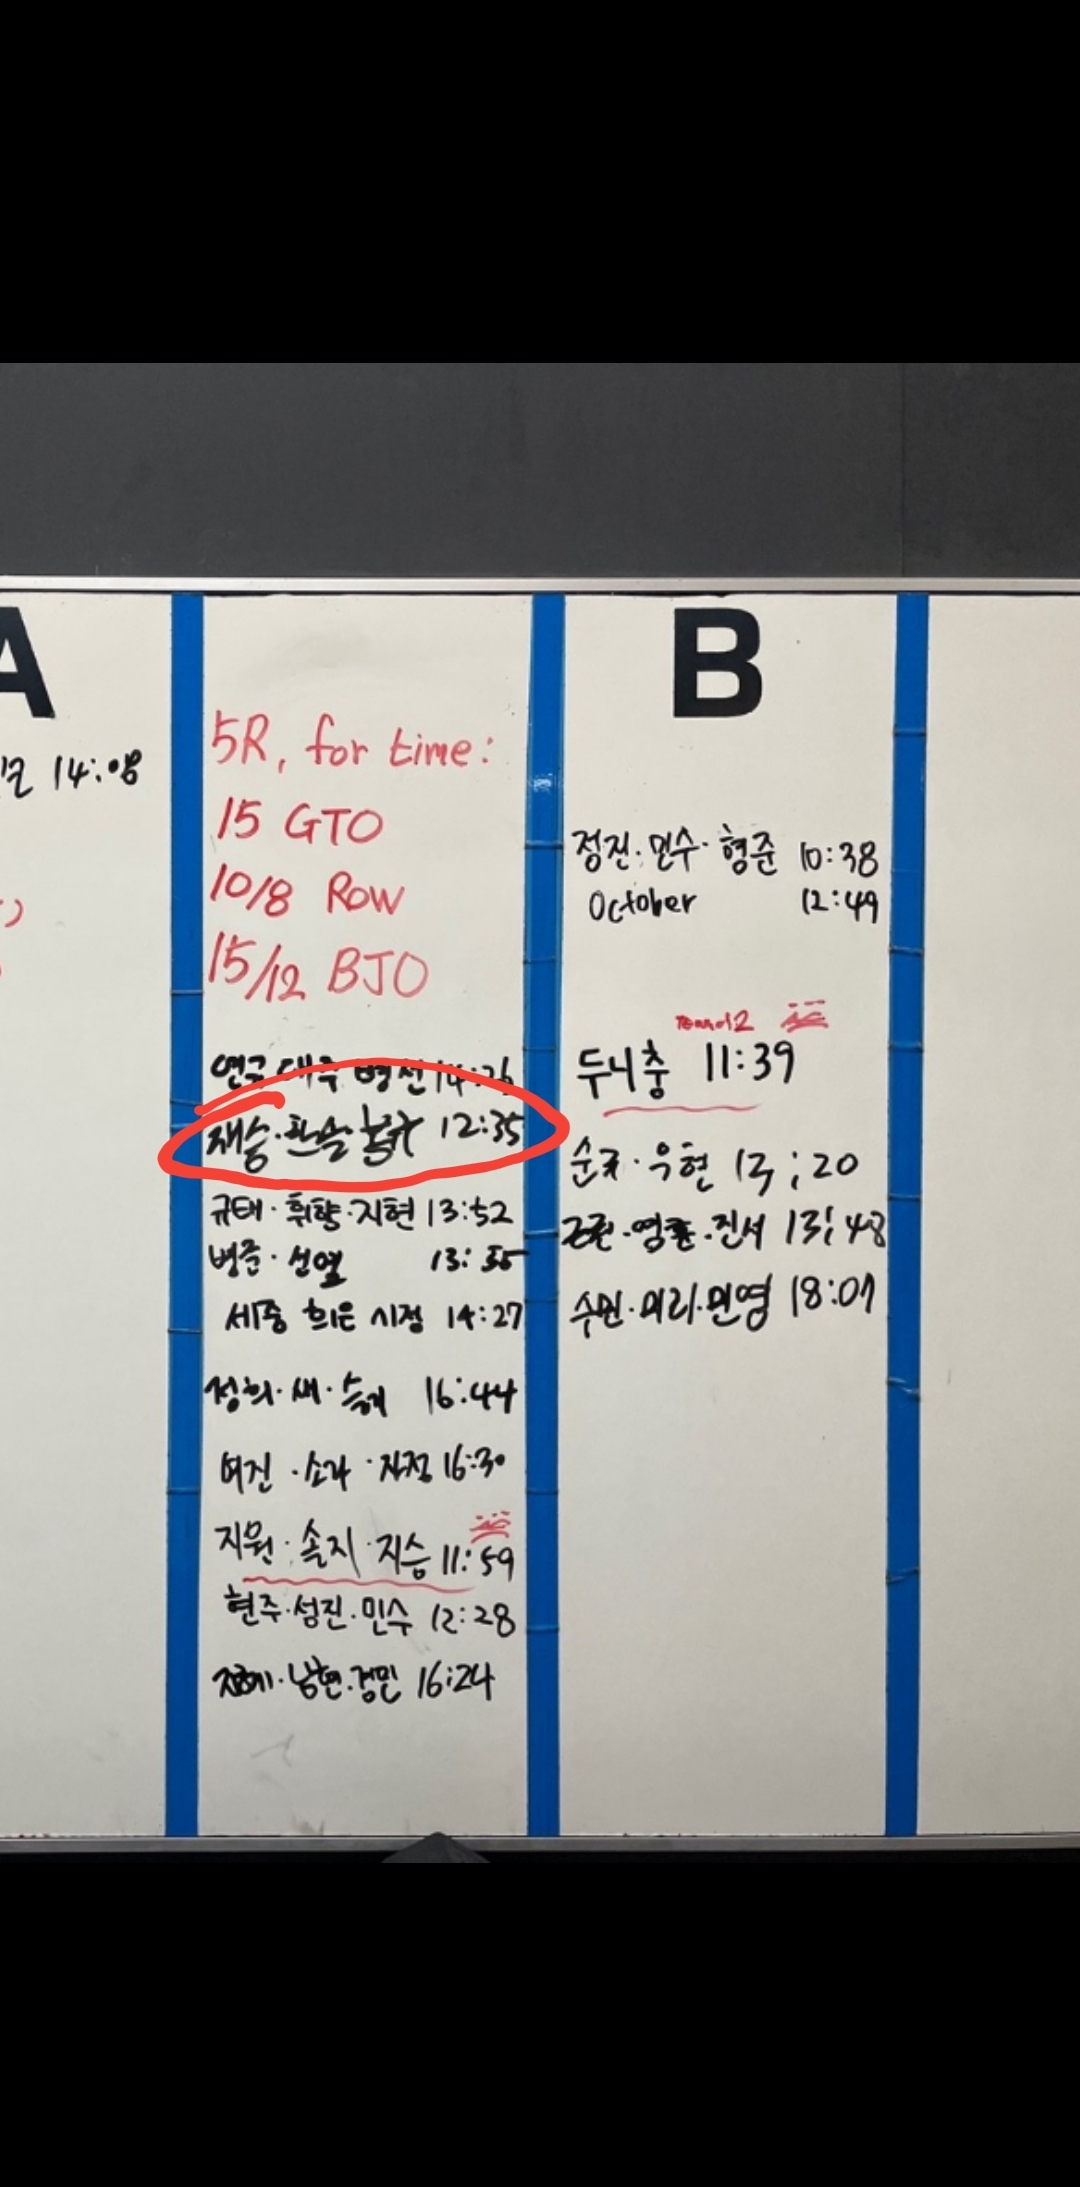 A
14:08
5R, for time:
15 GTO
10/8 Row
15/12 BJO
연국 대주 병선 14:26
재승·한솔 봉규 12:35
규태·휘향·지현 13:52
병준·선열 13:55
세중 희은 시정 14:27
정희·새·슬기 16:44
여진·소라·자정 16:30
지원·솔지·지승 11:59
현주·성진·민수 12:28
남현·경민 16:24
B
정진·민수·형준 10:38
October 12:49
Round 2
두니충 11:39
순규·우현 13:20
영훈·진서 13:48
수민·미리·민영 18:07